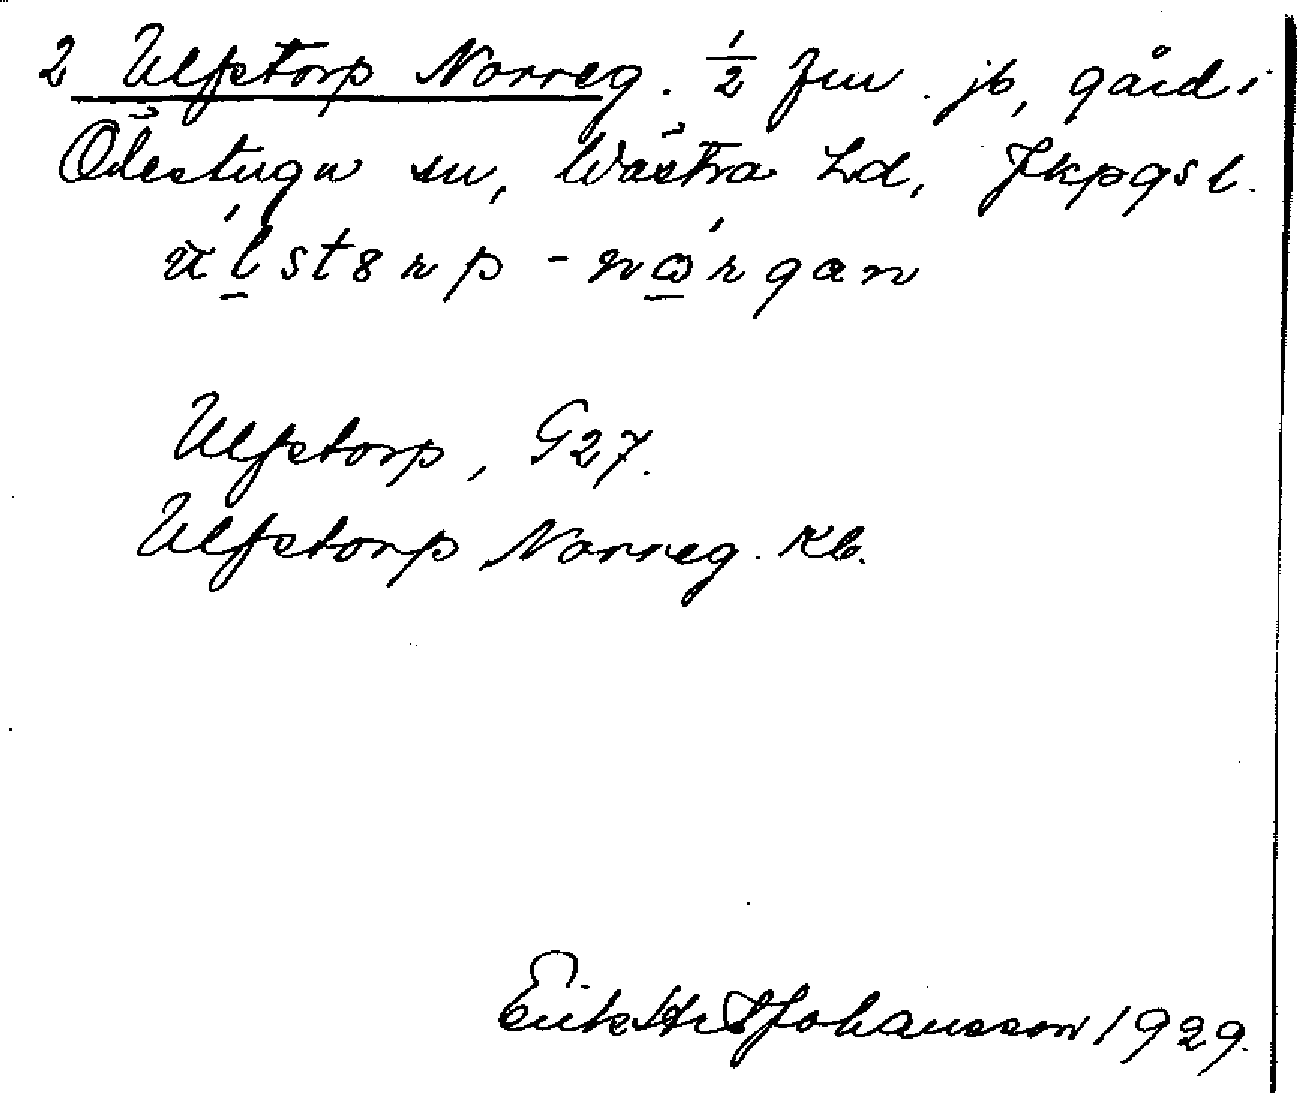 2 Ulfstorp Norreg. 1/2 fm. jb, gård i
Ödestugu sn, Västra hd, Jkpgs l.
u̇́lstɘrp - nǿrgan
Ulfstorp, G27.
Ulfstorp Norreg. Kb.
Johansson 1929.